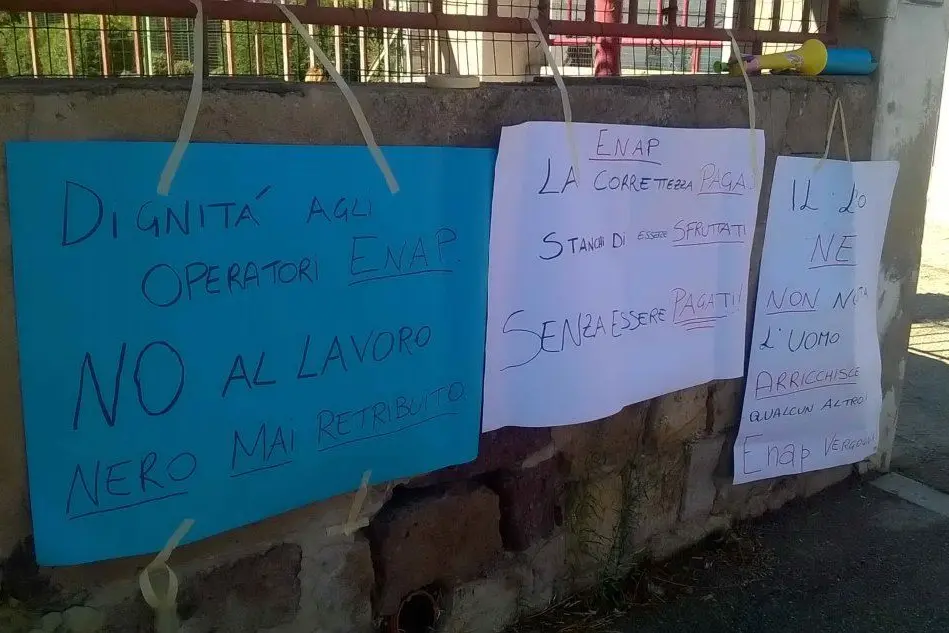 DIGNITÁ AGLI
OPERATORI ENAP.
NO AL LAVORO
NERO MAI RETRIBUITO.
ENAP
LA CORRETTEZZA PAGA
STANCHI DI ESSERE SFRUTTATI
SENZA ESSERE PAGATI!
IL
NE
NON
L'UOMO
ARRICCHISCE
QUALCUN ALTRO!
Enap